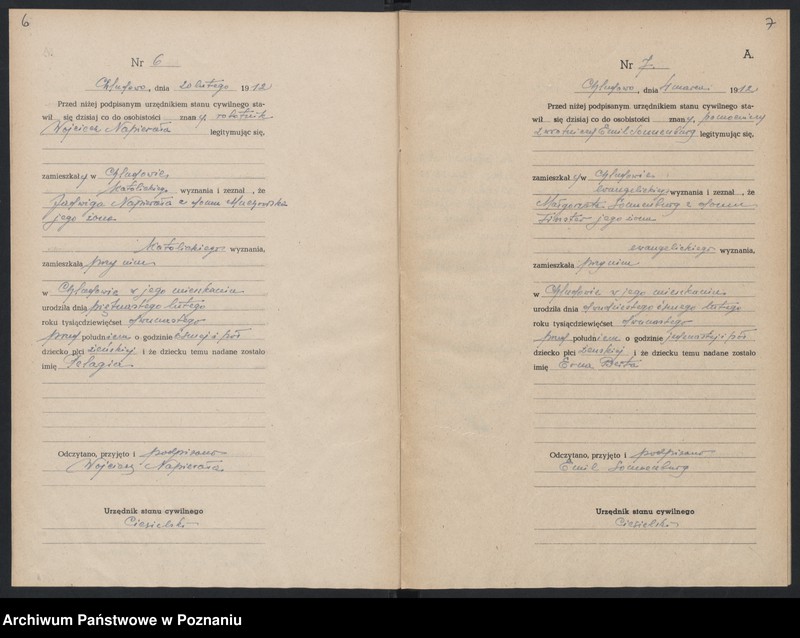 6
Nr 6
Chludowo, dnia 20 lutego 1912
Przed niżej podpisanym urzędnikiem stanu cywilnego sta-
wił się dzisiaj co do osobistości znany, robotnik
Wojciech Napierała legitymując się,
zamieszkały w Chludowie
katolickiego wyznania i zeznał, że
Jadwiga Napierała z domu
jego żona
katolickiego wyznania,
zamieszkała przy nim
w Chludowie w jego mieszkaniu
urodziła dnia piętnastego lutego
roku tysiącdziewięćset dwunastego
przed południem o godzinie ósmej i pół
dziecko płci żeńskiej i że dziecku temu nadane zostało
imię Pelagia
Odczytano, przyjęto i podpisano
Wojciech Napierała
Urzędnik stanu cywilnego
Ciesielski
7
A.
Nr 7.
Chludowo, dnia 4 marca 1912
Przed niżej podpisanym urzędnikiem stanu cywilnego sta-
wił się dzisiaj co do osobistości znany, pomocniczy
zwrotniczy Emil Sonnenburg legitymując się,
zamieszkały w Chludowie
ewangelickiego wyznania i zeznał, że
Małgorzata Sonnenburg z domu
jego żona
ewangelickiego wyznania,
zamieszkała przy nim
w Chludowie w jego mieszkaniu
urodziła dnia dwudziestego ósmego lutego
roku tysiącdziewięćset dwunastego
przed południem o godzinie jedenastej i pół
dziecko płci żeńskiej i że dziecku temu nadane zostało
imię Erna
Odczytano, przyjęto i podpisano
Emil Sonnenburg
Urzędnik stanu cywilnego
Ciesielski
Archiwum Państwowe w Poznaniu